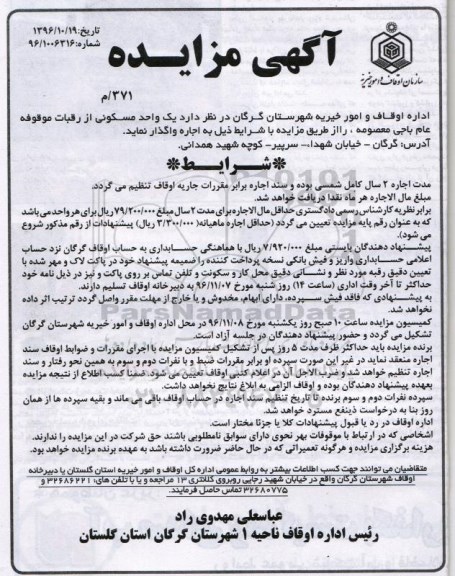 تاریخ: ۱۳۹۶/۱۰/۱۹
شماره: ۹۶/۱۰۰۶۳۱۶
آگهی مزایده
سازمان اوقاف و امور خیریه
۳۷۱/م
اداره اوقاف و امور خیریه شهرستان گرگان در نظر دارد یک واحد مسکونی از رقبات موقوفه
عام باجی معصومه ، را از طریق مزایده با شرایط ذیل به اجاره واگذار نماید.
آدرس: گرگان - خیابان شهدا،- سرپیر- کوچه شهید همدانی.
*شرایط*
مدت اجاره ۲ سال کامل شمسی بوده و سند اجاره برابر مقررات جاریه اوقاف تنظیم می گردد.
مبلغ مال الاجاره هر ماه نقدا دریافت خواهد شد.
برابر نظریه کارشناس رسمی دادگستری حداقل مال الاجاره برای مدت ۲ سال مبلغ ۷۹/۲۰۰/۰۰۰ ریال برای هر واحد می باشد
که به عنوان رقم پایه مزایده تعیین می گردد (حداقل اجاره ماهیانه ۳/۳۰۰/۰۰۰ ریال) پیشنهادات از رقم مذکور شروع
می شود).
پیشنهاد دهندگان بایستی مبلغ ۷/۹۲۰/۰۰۰ ریال با هماهنگی حسابداری به حساب اوقاف گرگان نزد حساب
اعلامی حسابداری واریز و فیش بانکی نسخه پرداخت کننده را ضمیمه پیشنهاد خود در پاکت لاک و مهر شده با
تعیین دقیق رقبه مورد نظر و نشانی دقیق محل کار و سکونت و تلفن تماس بر روی پاکت و نیز در ذیل نامه خود
حداکثر تا آخر وقت اداری (ساعت ۱۴) روز شنبه مورخ ۹۶/۱۱/۰۷ به دبیرخانه اوقاف تسلیم دارند.
به پیشنهادی که فاقد فیش سپرده، دارای ابهام، مخدوش و یا خارج از مهلت مقرر واصل گردد ترتیب اثر داده
نخواهد شد.
کمیسیون مزایده ساعت ۱۰ صبح روز یکشنبه مورخ ۹۶/۱۱/۰۸ در محل اداره اوقاف و امور خیریه شهرستان گرگان
تشکیل می گردد و حضور پیشنهاد دهندگان در جلسه آزاد است.
برنده مزایده باید حداکثر ظرف مدت ۵ روز پس از تشکیل کمیسیون مزایده با اجرای مقررات و ضوابط اوقاف سند
اجاره منعقد نماید در غیر این صورت سپرده او برابر مقررات ضبط و با نفرات دوم و سوم به همین نحو رفتار و سند
اجاره تنظیم خواهد شد و ضرب الاجل آن در اعلام کتبی اوقاف تعیین می شود. ضمناً کسب اطلاع از نتیجه مزایده
بعهده پیشنهاد دهندگان بوده و اوقاف الزامی به ابلاغ نتایج نخواهد داشت.
سپرده نفرات دوم و سوم برنده تا تاریخ تنظیم سند اجاره در حساب اوقاف باقی می ماند و بقیه سپرده ها از همان
روز بنا به درخواست ذینفع مسترد خواهد شد.
اداره اوقاف در رد یا قبول پیشنهادات کلا یا جزئا مختار است.
اشخاصی که در ارتباط با موقوفات بهر نحوی دارای سوابق نامطلوبی باشند حق شرکت در این مزایده را ندارند.
هزینه برگزاری مزایده و هرگونه تعمیراتی که در حال حاضر ضرورت داشته باشد به عهده برنده مزایده خواهد بود.
متقاضیان می توانند جهت کسب اطلاعات بیشتر به روابط عمومی اداره کل اوقاف و امور خیریه استان گلستان یا دبیرخانه
اوقاف شهرستان گرگان واقع در خیابان شهید رجایی روبروی کلانتری ۱۳ مراجعه و یا با تلفن های: ۳۲۶۸۶۲۲۱ و
۳۲۶۸۰۷۷۵ تماس حاصل فرمایند.
عباسعلی مهدوی راد
رئیس اداره اوقاف ناحیه ۱ شهرستان گرگان استان گلستان